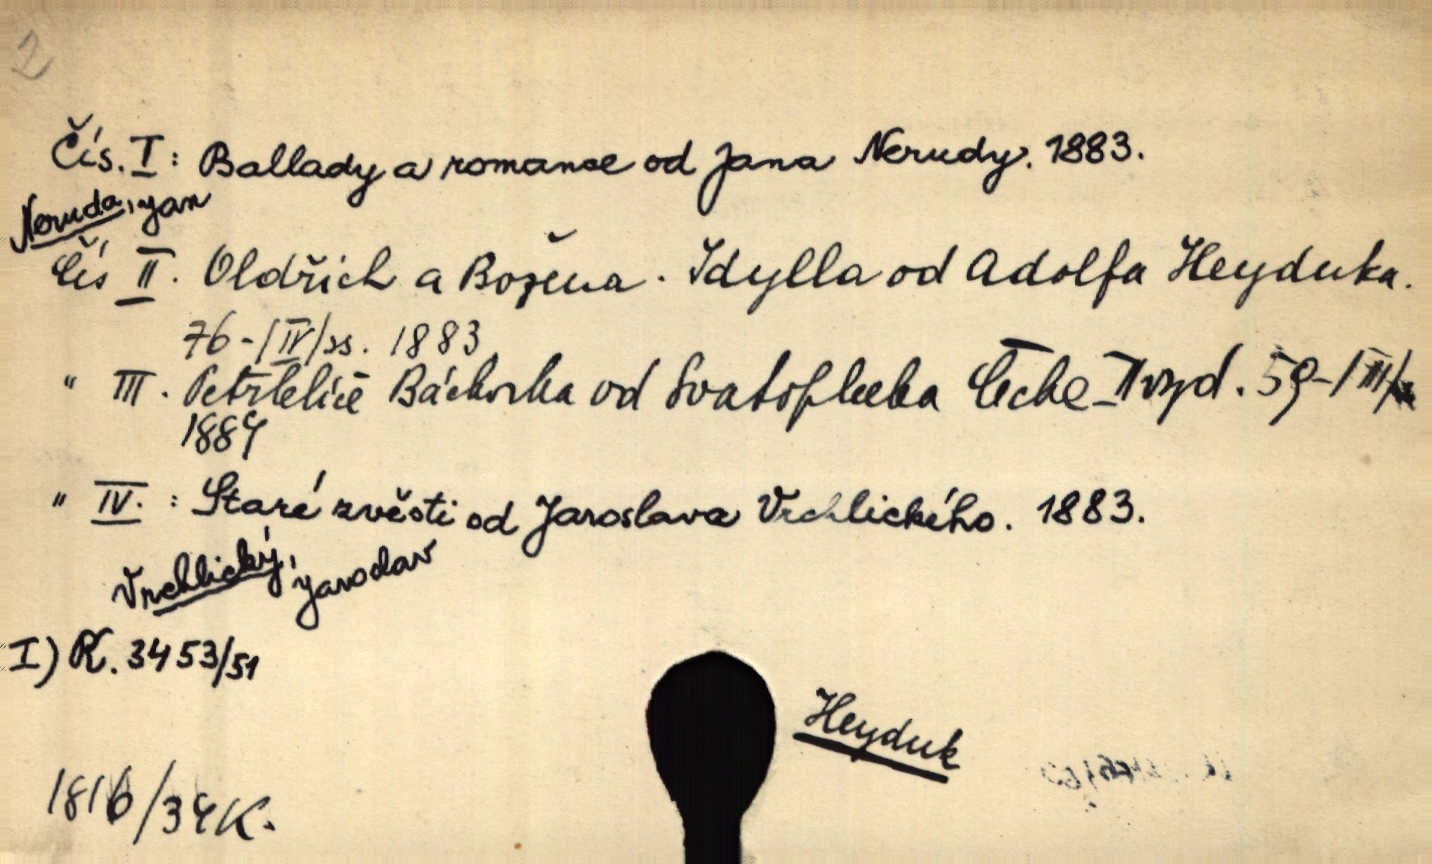 2
Čís. I: Ballady a romance od Jana Nerudy. 1883.
Neruda, Jan
Čís II. Oldřich a Božena. Idylla od Adolfa Heyduka.
76-/IV/ss. 1883
" III. Petrklíče Báchorka od Svatopluka Čecha II vyd. 59-/III/
1884
" IV. : Staré zvěsti od Jaroslava Vrchlického. 1883.
Vrchlický, Jaroslav
I) R. 3453/51
Heyduk
1816/34K.